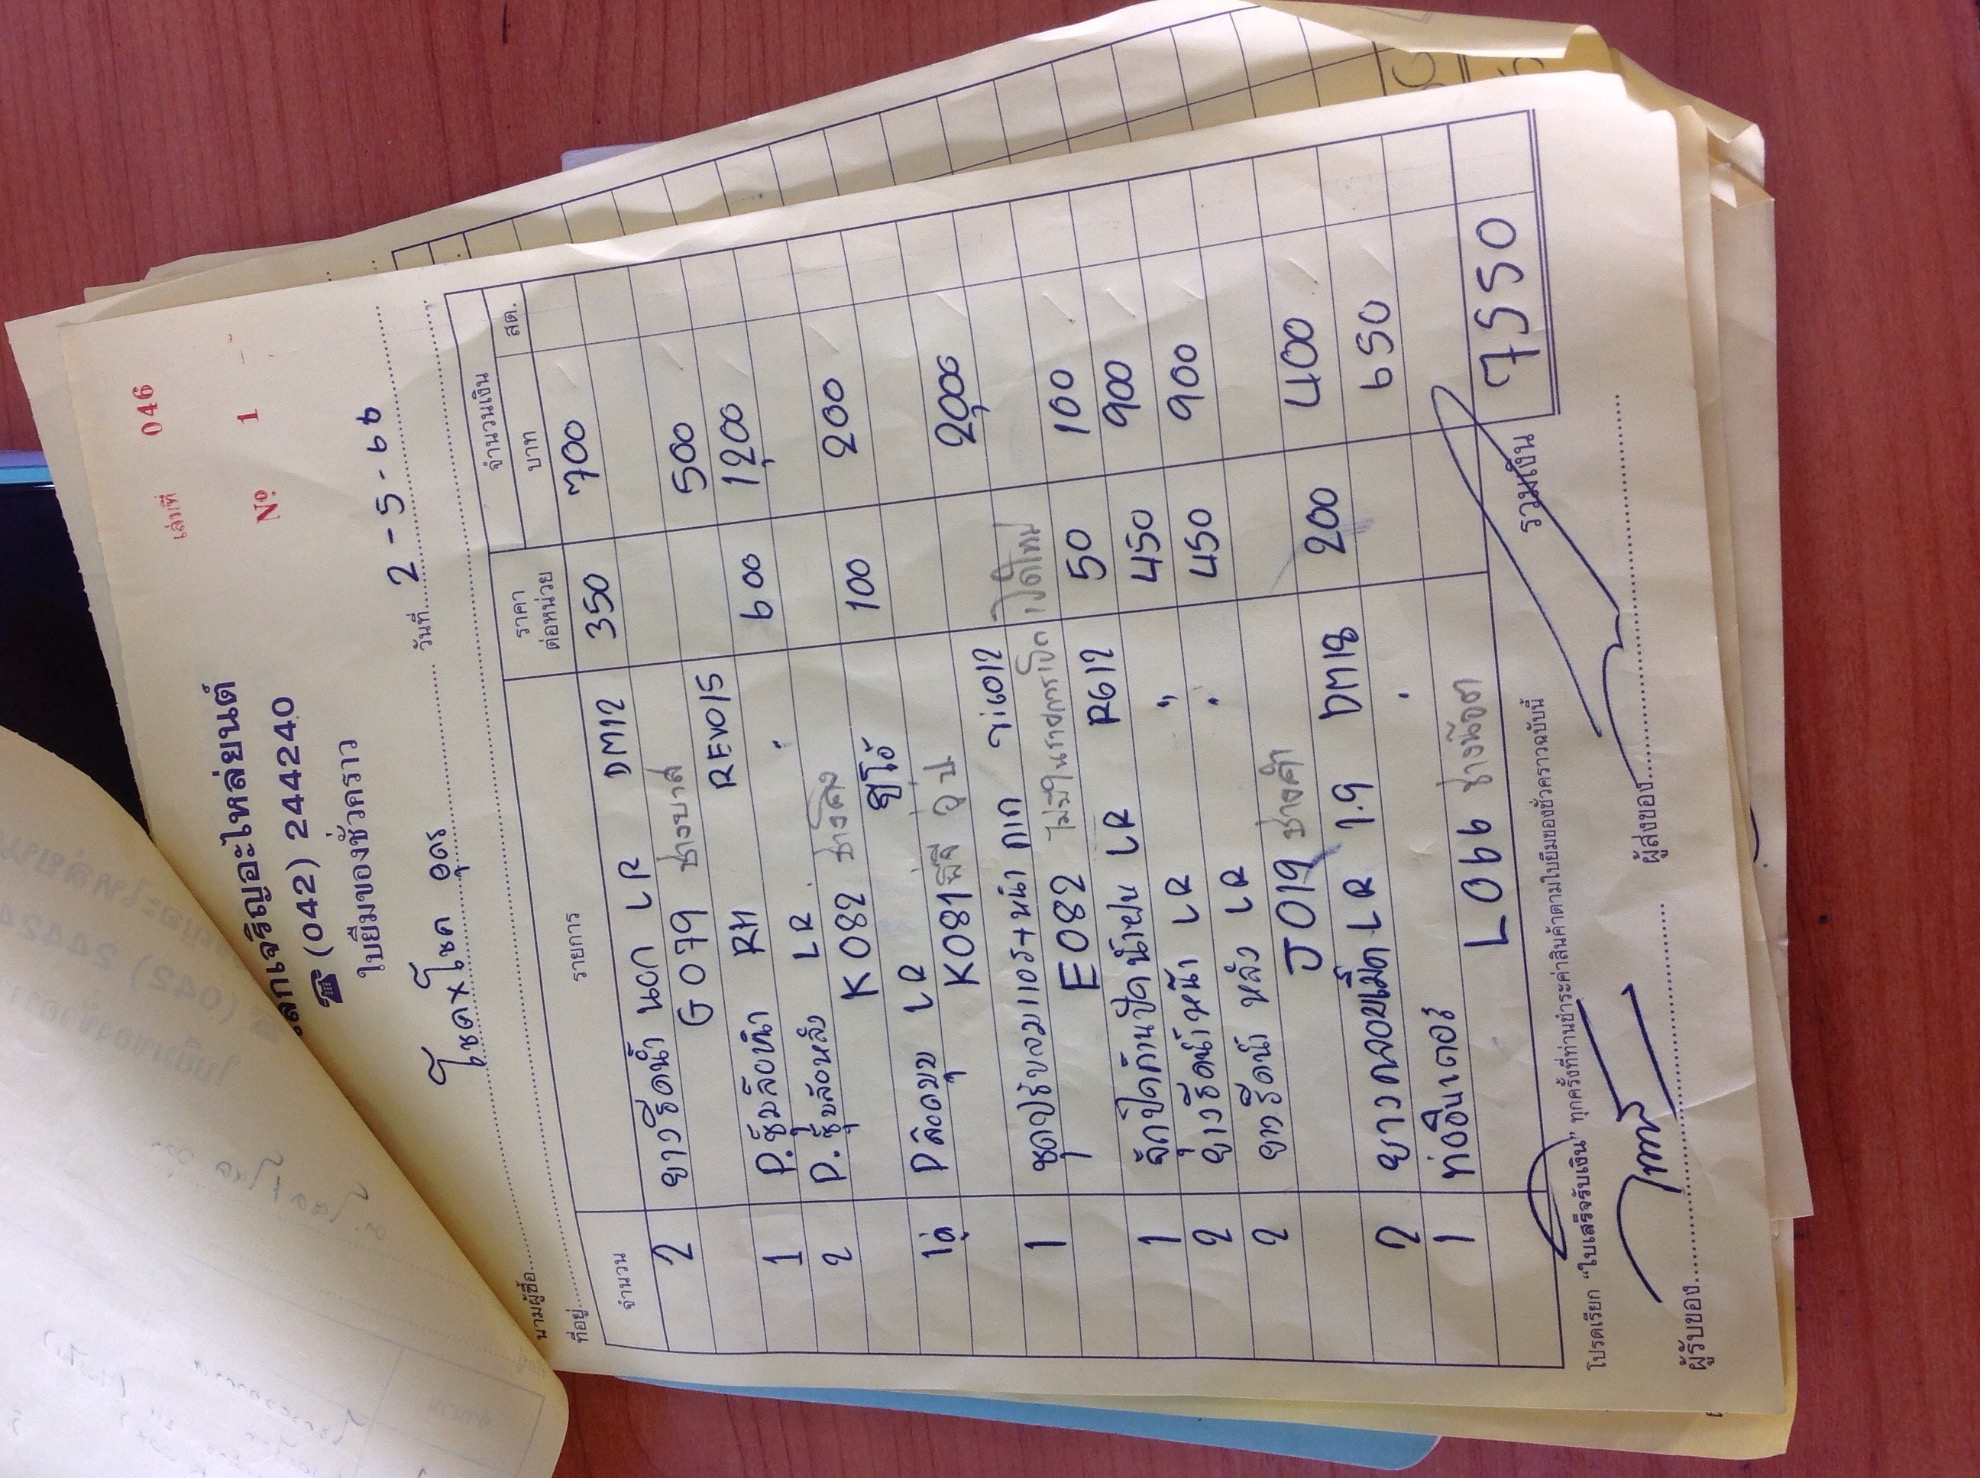 เล่มที่ 046
Nº 1
โลกเจริญอะไหล่ยนต์
☎ (042) 244240
ใบยืมของชั่วคราว
วันที่ 2-5-66
นามผู้ซื้อ โชคxโชค อุดร
ที่อยู่
จำนวน รายการ ราคาต่อหน่วย จำนวนเงิน
บาท สต.
2 ยางรีดน้ำ นอก LR DM12 350 700
G079 ช่างบาส
1 P.ซุ้มล้อหน้า RH REVO15 500
2 P.ซุ้มล้อหลัง LR 〃 600 1,200
K082 ช่างโด่ง
LR วีโก้ 100 200
K081
1 ชุดปรับลมแอร์+หน้ากาก วีโก้12 2,000
E082 ไม่มีในรายการเบิก เปิดใหม่
1 กิ๊ฟปิดก้านปัดน้ำฝน LR RG12 50 100
2 ยางรีดน้ำหน้า LR 〃 450 900
2 ยางรีดน้ำ หลัง LR 〃 450 900
J019 ช่างดำ
2 ยางกลอบเม็ด LR 1.9 DM18 200 400
1 ท่ออินเตอร์ 〃 650
L066
รวมเงิน 7550
โปรดเรียก "ใบเสร็จรับเงิน" ทุกครั้งที่ท่านชำระค่าสินค้าตามใบยืมของชั่วคราวฉบับนี้
ผู้รับของ ผู้ส่งของ